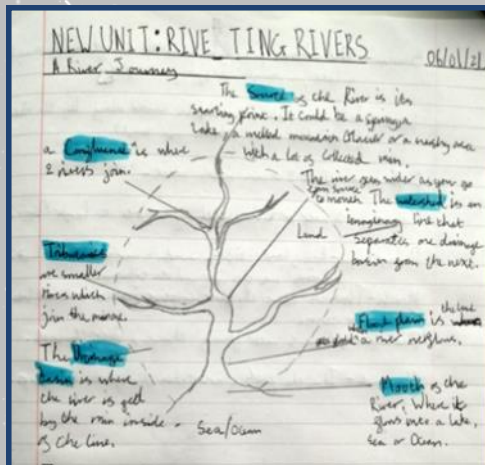 NEW UNIT: RIVE TING RIVERS
06/01/21
A River Journey
The Source of the River is its
starting point. It could be a spring, a
lake, a melted mountain Glacier or a marshy area
with a lot of collected rain.
a Confluence is where
2 rivers join.
The river gets wider as you go
from source to mouth
The watershed is an
imaginary line that
separates one drainage
basin from the next.
Land
Tributaries
are smaller
rivers which
join the
The Drainage
basin is where
the river is fed
by the rain inside
of the line.
Flood plain is the land
a river
Mouth of the
River, Where it
flows into a lake,
Sea or Ocean.
Sea/Ocean